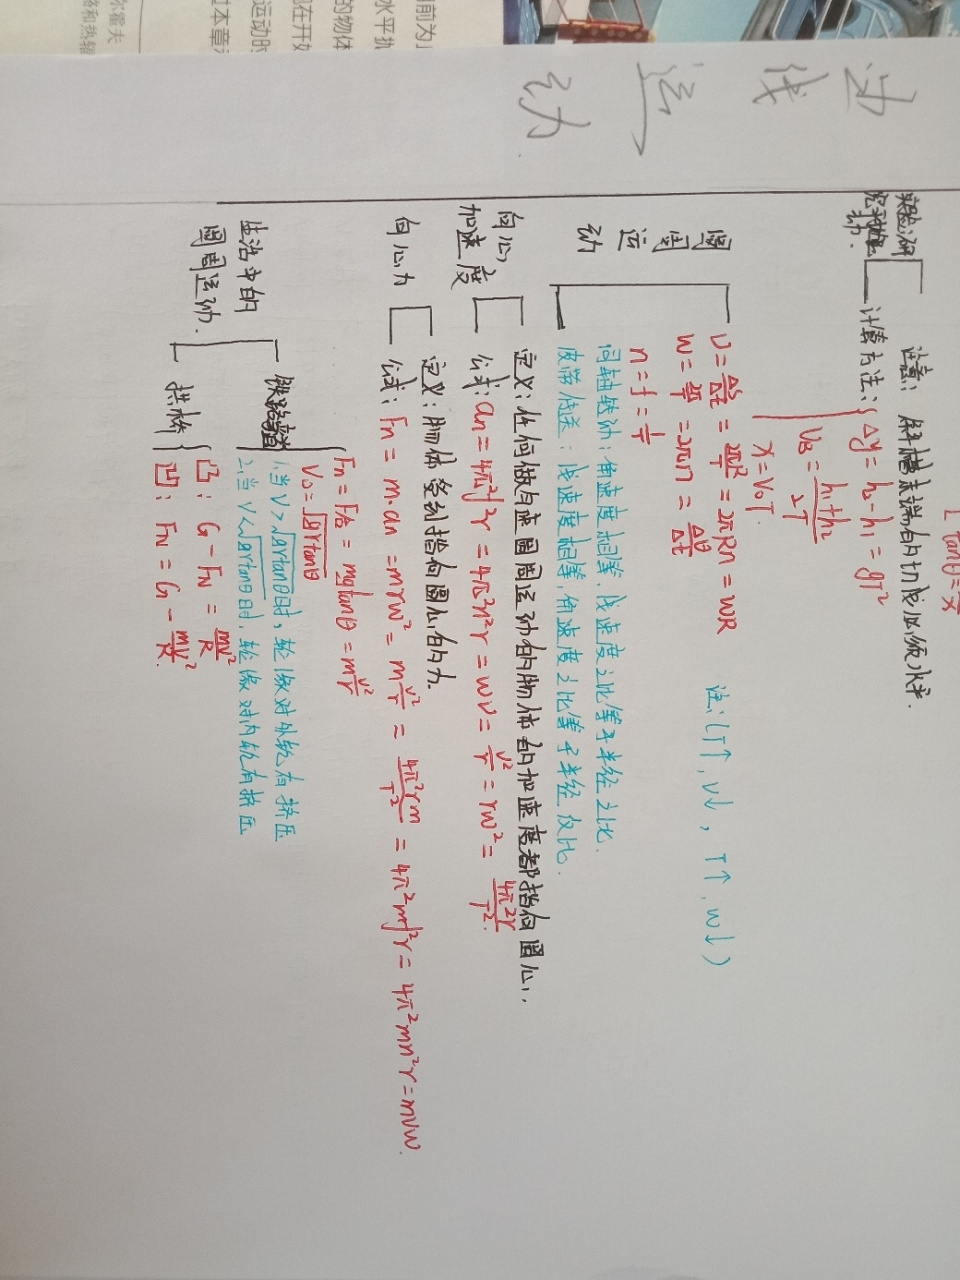 曲线运动
tanθ=y/x
实验:研究平抛运动.
注意: 斜槽末端的切线必须水平.
计算方法: { Δy = h₂ - h₁ = gT²
V_B = (h₁+h₂)/2T
x = V₀T
圆周运动
v = Δs/Δt = 2πR/T = 2πRn = WR
W = 2π/T = 2πn = Δθ/Δt
注:(T↑,v↓, T↑,w↓)
n = f = 1/T
同轴转动:角速度相等,线速度之比等于半径之比.
皮带传送:线速度相等,角速度之比等于半径反比.
向心加速度
定义:任何做匀速圆周运动的物体的加速度都指向圆心,.
公式: an = 4π²f²r = 4π²n²r = wv = v²/r = rw² = 4π²r/T².
向心力
定义:物体受到指向圆心的力.
公式: Fn = m·an = mrw² = m v²/r = 4π²rm/T² = 4π²mf²r = 4π²mn²r = mvw.
生活中的圆周运动.
铁路弯道
Fn = F合 = mgtanθ = m v²/r
V₀ = √grtanθ
1.当V>√grtanθ时,轮缘对外轨有挤压
2.当V<√grtanθ时,轮缘对内轨有挤压
拱桥
凸: G - FN = mv²/R
凹: FN = G - mv²/R.
尔霍夫
格和热辐